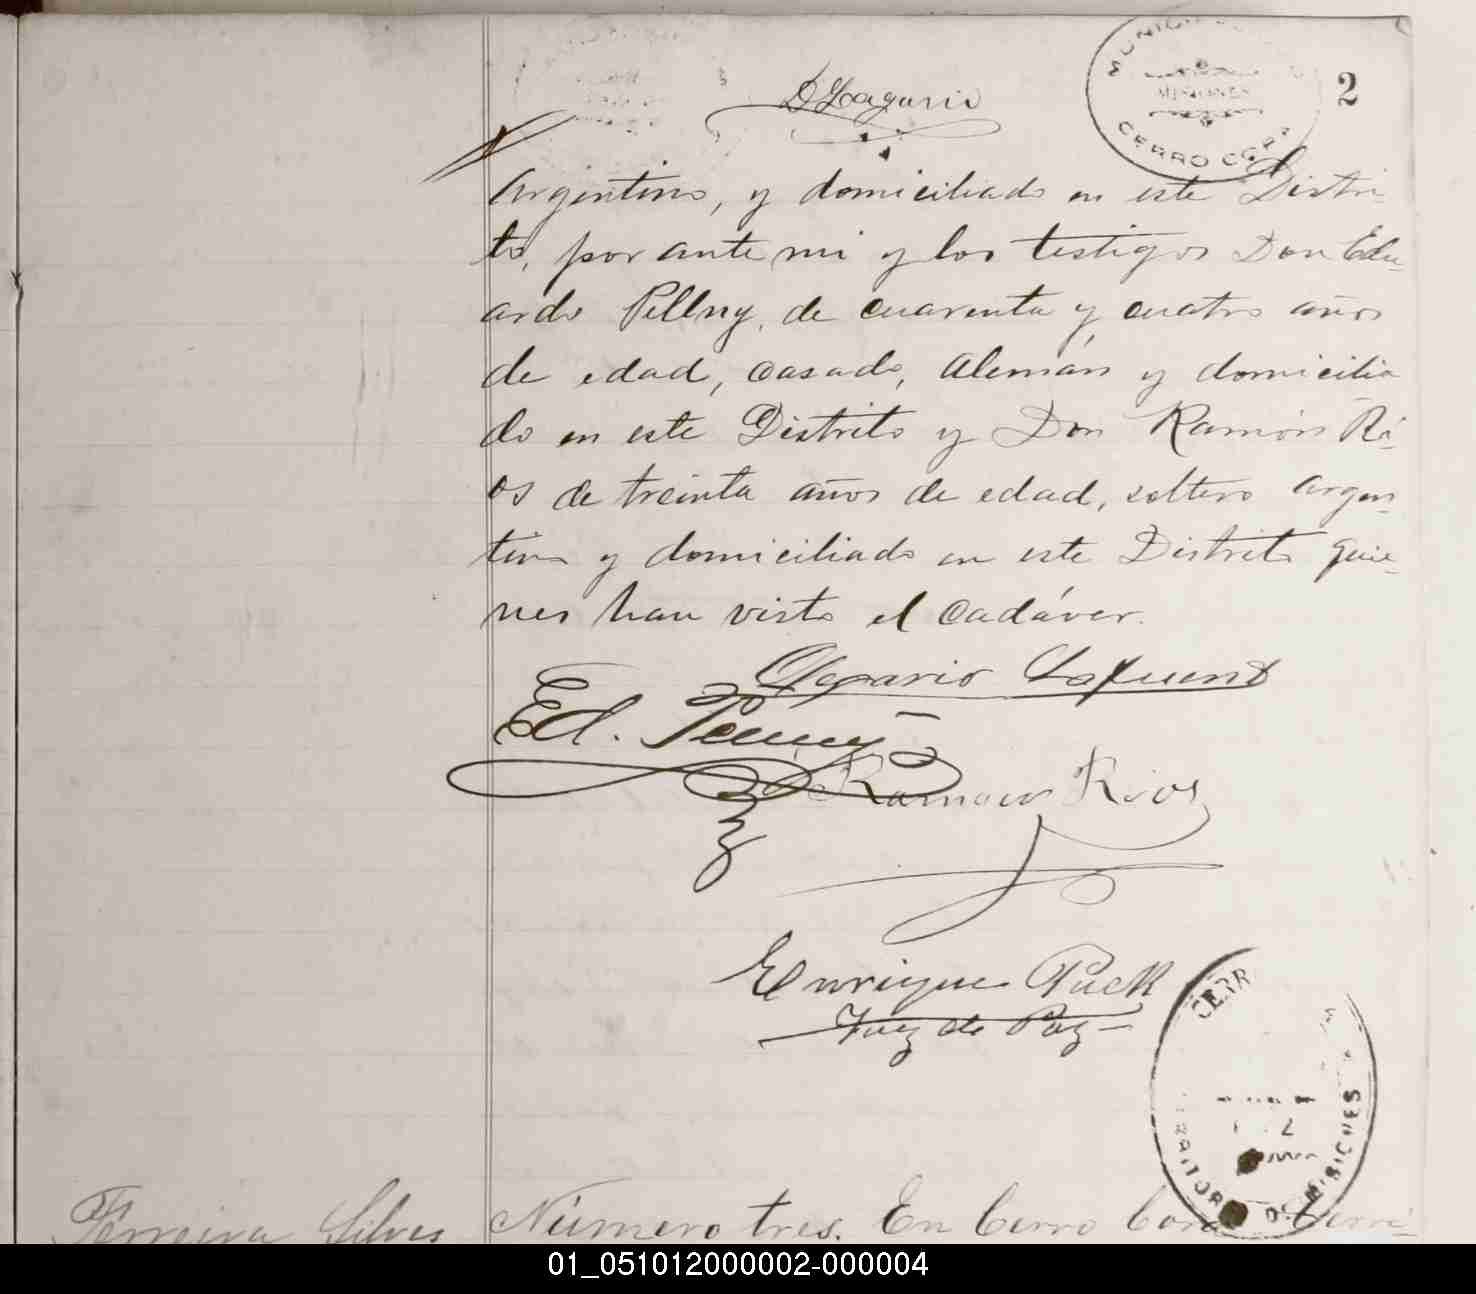 MUNICI
MISIONES
CERRO CORA
2
Argentino, y domiciliado en este Distri-
to, por ante mi y los testigos Don Edu-
ardo Pellny, de cuarenta y cuatro años
de edad, casado, Alemán y domicilia
do en este Distrito y Don Ramón Rí-
os de treinta años de edad, soltero argen-
tino y domiciliado en este Distrito quie-
nes han visto el cadáver.
Ed.
Ramon Rios
Enrique Puck
Juez de Paz
CERR
MISIONES
Ferreira Silves
Número tres. En Cerro Cora Terri-
01_051012000002-000004